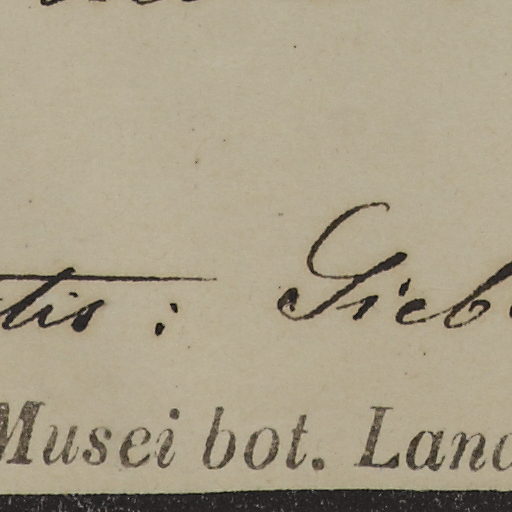 tis: Gieb
Musei bot. Land